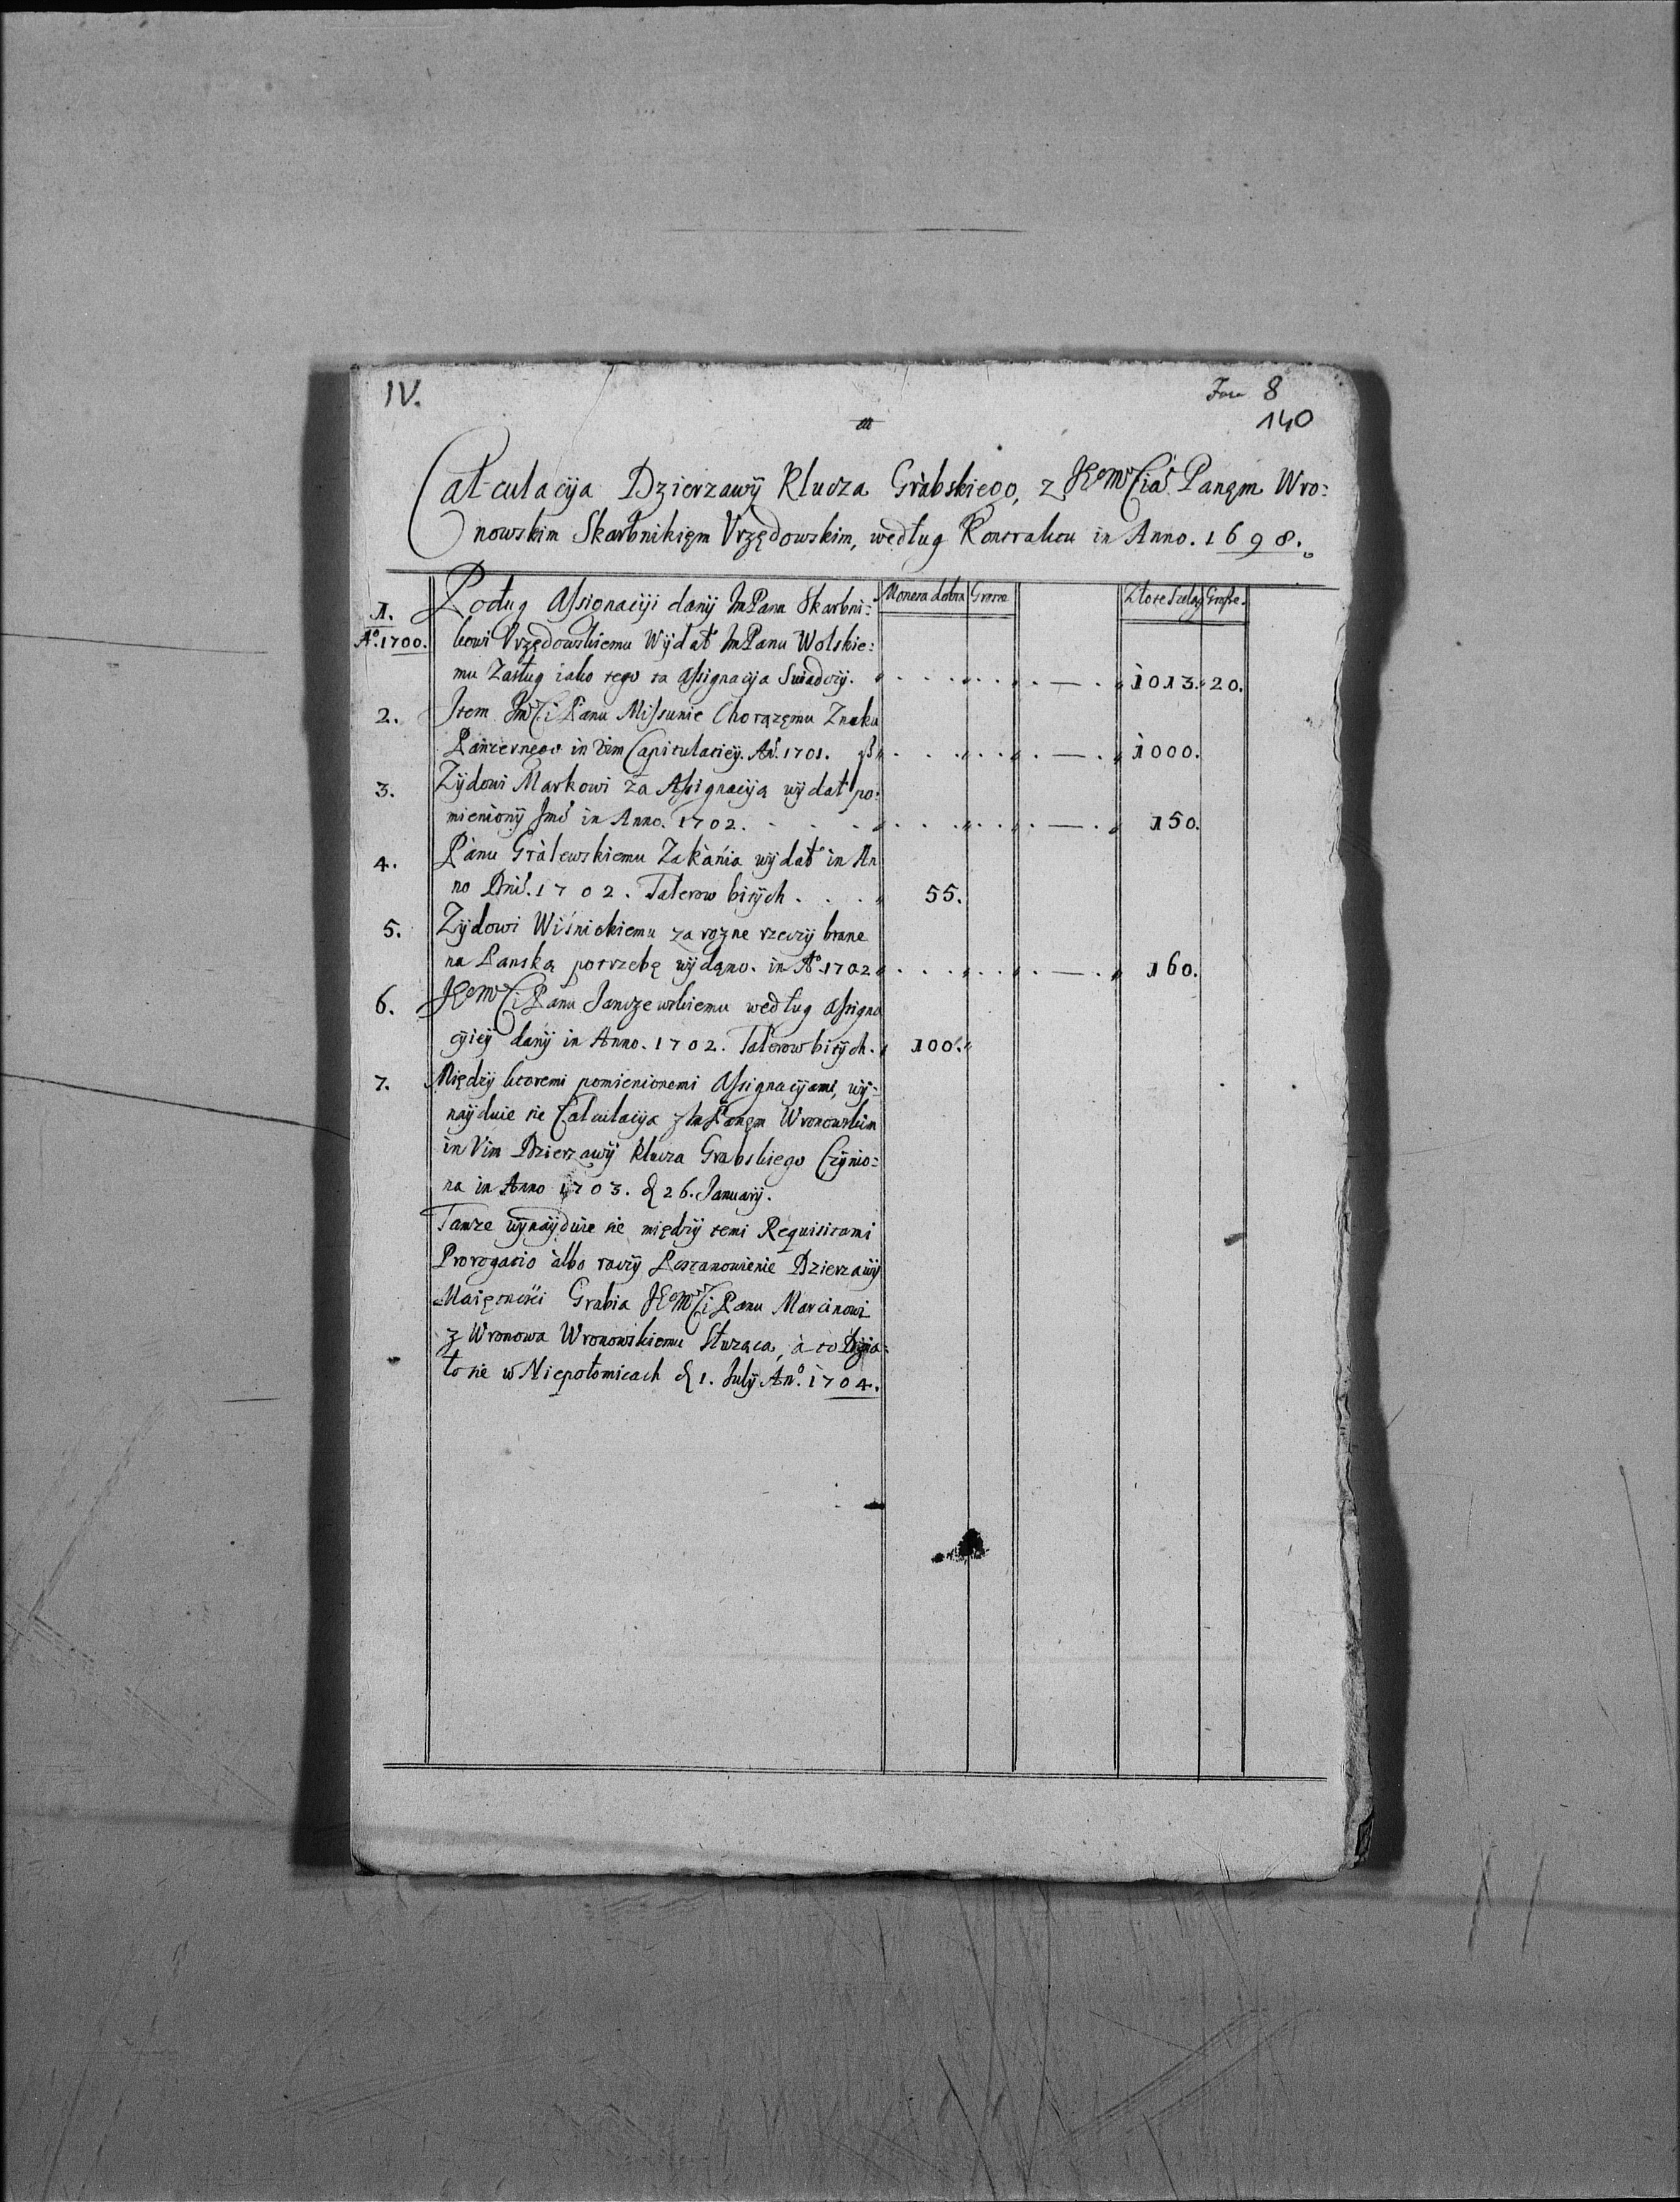 IV.
Fasc 8
140
Calculacija Dzierzawÿ Klucza Grabskiego, z JE͠Mcią Panęm Wro=
nowskim Skarbnikięm Vrzędowskim, według Kontraktu in Anno. 1698.
Moneta dobra Grosze Złote Szeląg Grosze.
1. Podług Assignacÿi danÿ ImPanu Skarbni=
Aº. 1700. kowi Vrzędowskiemu Wÿdał ImPanu Wolskie=
mu Zasług iako tego ta Assignacÿa Swiadczÿ. 1013. 20.
2. Item Im̃ci Panu Missunie Chorązęmu Znaku
Pancernego in Vim Capitulaciey. Aº. 1701. 1000.
3. Zÿdowi Markowi za Assignacÿą wÿdał po=
mienionÿ Jmć in Anno. 1702. 150.
4. Panu Gralewskiemu wÿdał in An
no Dni. 1702. Talerow bitÿch 55.
5. Zÿdowi Wiśnickiemu za rozne rzeczÿ brane
na Panską potrzebę wÿdano. in Aº. 1702 160.
6. JE͠Mci Panu Janczewskiemu według Assigna
cÿieÿ danÿ in Anno. 1702. Talerow bitÿch. 100.
7. Międzÿ ktoremi pomienionemi Assignacÿami, wÿ=
naÿduie sie Calculacÿa z ImPanęm Wronowskim
in Vim Dzierzawÿ Klucza Grabskiego Czÿnio=
na in Anno 1703. d 26. Januarÿ.
Tamze wÿnaÿduie sie międzÿ temi Requisitami
Prorogatio albo raczÿ Postanowienie Dzierzawÿ
Maiętności Grabia JE͠Mci Panu Marcinowi
z Wronowa Wronowskiemu Słuząca, a to Dzia=
ło sie w Niepołomicach d 1. Julÿ Anº. 1704.